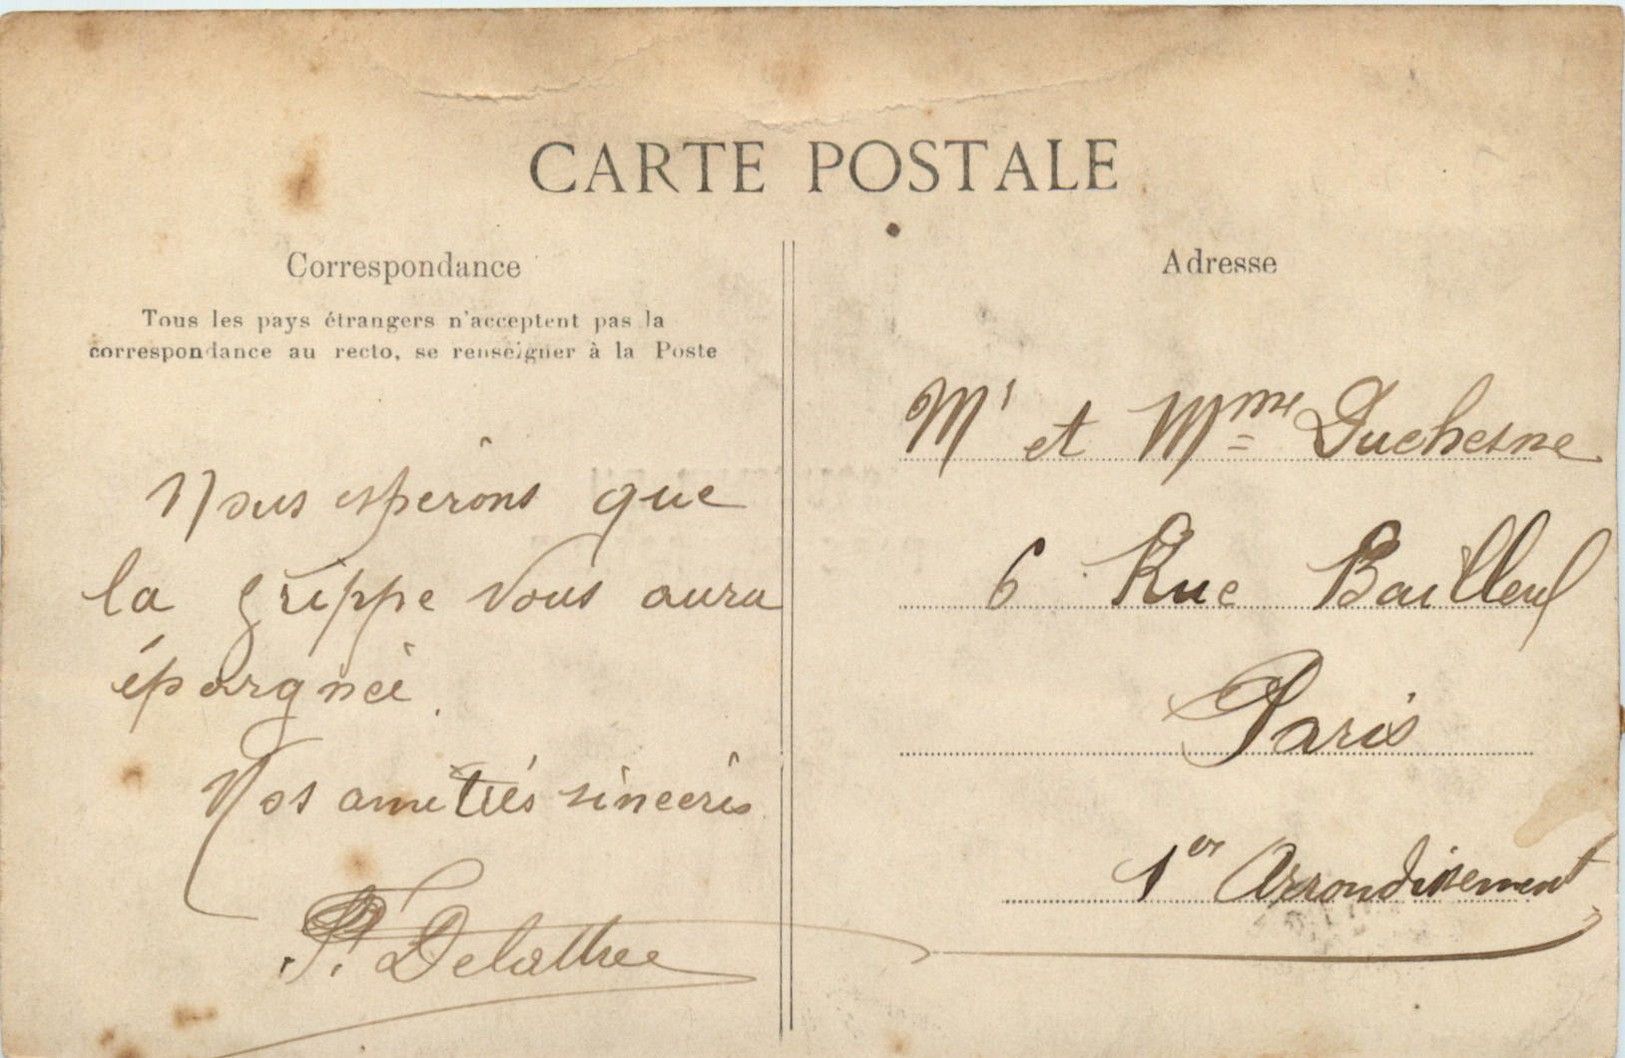 CARTE POSTALE
Correspondance
Tous les pays étrangers n'acceptent pas la
correspondance au recto, se renseigner à la Poste
Nous espérons que
la grippe vous aura
épargnés.
Nos amitiés sincères
P. Delattre
Adresse
Mr et Mme Duchesne
6 Rue Bailleul
Paris
1er Arrondissement